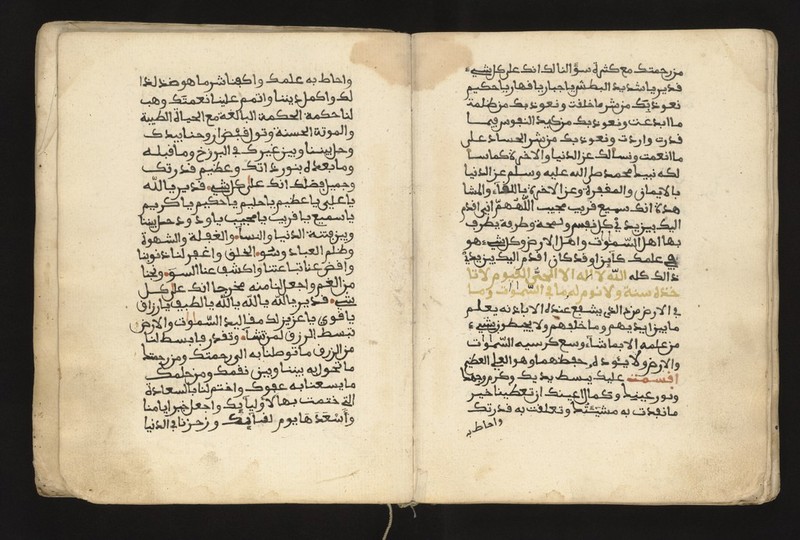 من رحمتك مع كثرة سؤالنا لك انك على كل شيء
قدير يا شديد البطش يا جبار يا قهار يا حكيم
نعوذ بك من شر ما خلقت ونعوذ بك من ظلمة
ما ابدعت ونعوذ بك من كيد النفوس فيما
قدرت واردت ونعوذ بك من شر الحساد على
ما انعمت ونسألك عز الدنيا والاخرة كما سأ
لكه نبيك محمد صلى الله عليه وسلم عز الدنيا
بالايمان والمغفرة وعز الاخرة باللقاء والمشا
هدة انك سميع قريب مجيب اللهم اني اقدم
اليك بين يدي كل نفس ولمحة وطرفة يطرف
بها اهل السموات واهل الارض وكل شيء هو
في علمك كاين او قد كان اقدم اليك بين يدي
ذالك كله الله لا اله الا هو الحي القيوم لا تا
خذه سنة ولا نوم له ما في السموات وما
في الارض من ذا الذي يشفع عنده الا باذنه يعلم
ما بين ايديهم وما خلفهم ولا يحيطون بشيء
من علمه الا بما شاء وسع كرسيه السموات
والارض ولا يئوده حفظهما وهو العلي العظيم
اقسمت عليك ببسط يديك وكرم وجهك
ونور عينيك وكمال اعينك ان تعطينا خير
ما نفذت به مشيئتك وتعلقت به قدرتك
واحاط به
واحاط به علمك واكفنا شر ما هو ضد لذا
لك واكمل ديننا واتمم علينا نعمتك وهب
لنا حكمة الحكمة البالغة مع الحياة الطيبة
والموتة الحسنة وتول قبض ارواحنا بيدك
وحل بيننا وبين غيرك في البرزخ وما قبله
وما بعده بنور ذاتك وعظيم قدرتك
وجميل فضلك انك على كل شيء قدير يا الله
يا علي يا عظيم يا حليم يا حكيم يا كريم
يا سميع يا قريب يا مجيب يا ودود حل بيننا
وبين فتنة الدنيا والنساء والغفلة والشهوة
وظلم العباد وسوء الخلق واغفر لنا ذنوبنا
واقض عنا تباعتنا واكشف عنا السوء ونجنا
من الغم واجعل لنا منه مخرجا انك على كل
شيء قدير يا الله يا الله يا الله يا لطيف يا رزاق
يا قوي يا عزيز لك مقاليد السموات والارض
تبسط الرزق لمن تشاء وتقدر فابسط لنا
من الرزق ما توصلنا به الى رحمتك ومن رحمتك
ما تحول به بيننا وبين نقمك ومن حلمك
ما يسعنا به عفوك واختم لنا بالسعادة
التي ختمت بها لاوليائك واجعل خير ايامنا
واسعدها يوم لقائك وزحزحنا في الدنيا